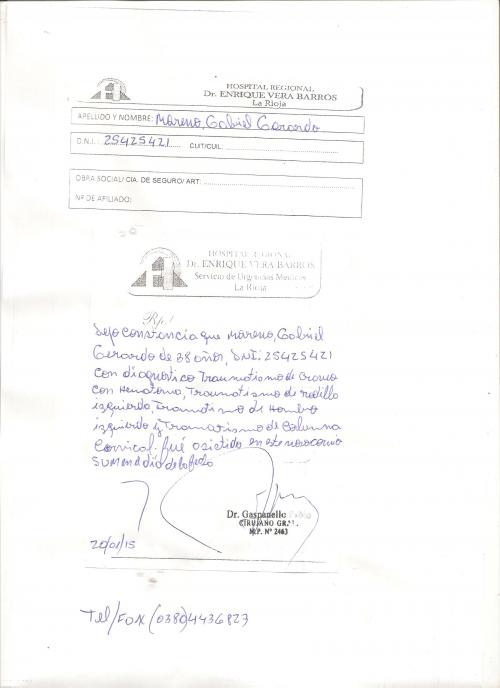 HOSPITAL REGIONAL
Dr. ENRIQUE VERA BARROS
La Rioja
APELLIDO Y NOMBRE: Moreno, Gabriel Gerardo
D.N.I.: 25425421 CUIT/CUIL:
OBRA SOCIAL/ CIA. DE SEGURO/ ART:
Nº DE AFILIADO:
HOSPITAL REGIONAL
Dr. ENRIQUE VERA BARROS
Servicio de Urgencias Médicas
La Rioja
Rp./
Dejo constancia que Moreno, Gabriel
Gerardo de 38 años, DNI: 25425421
con diagnostico Traumatismo de Craneo
con Hematoma, Traumatismo de rodilla
izquierda, Traumatismo de Hombro
izquierdo y Traumatismo de Columna
Cervical. Fué asistido en este nosocomio
dia de la fecha
Dr. Gaspanello Pablo
CIRUJANO GRAL.
M.P. Nº 2463
20/01/15
Tel/FAX (0380)4436827